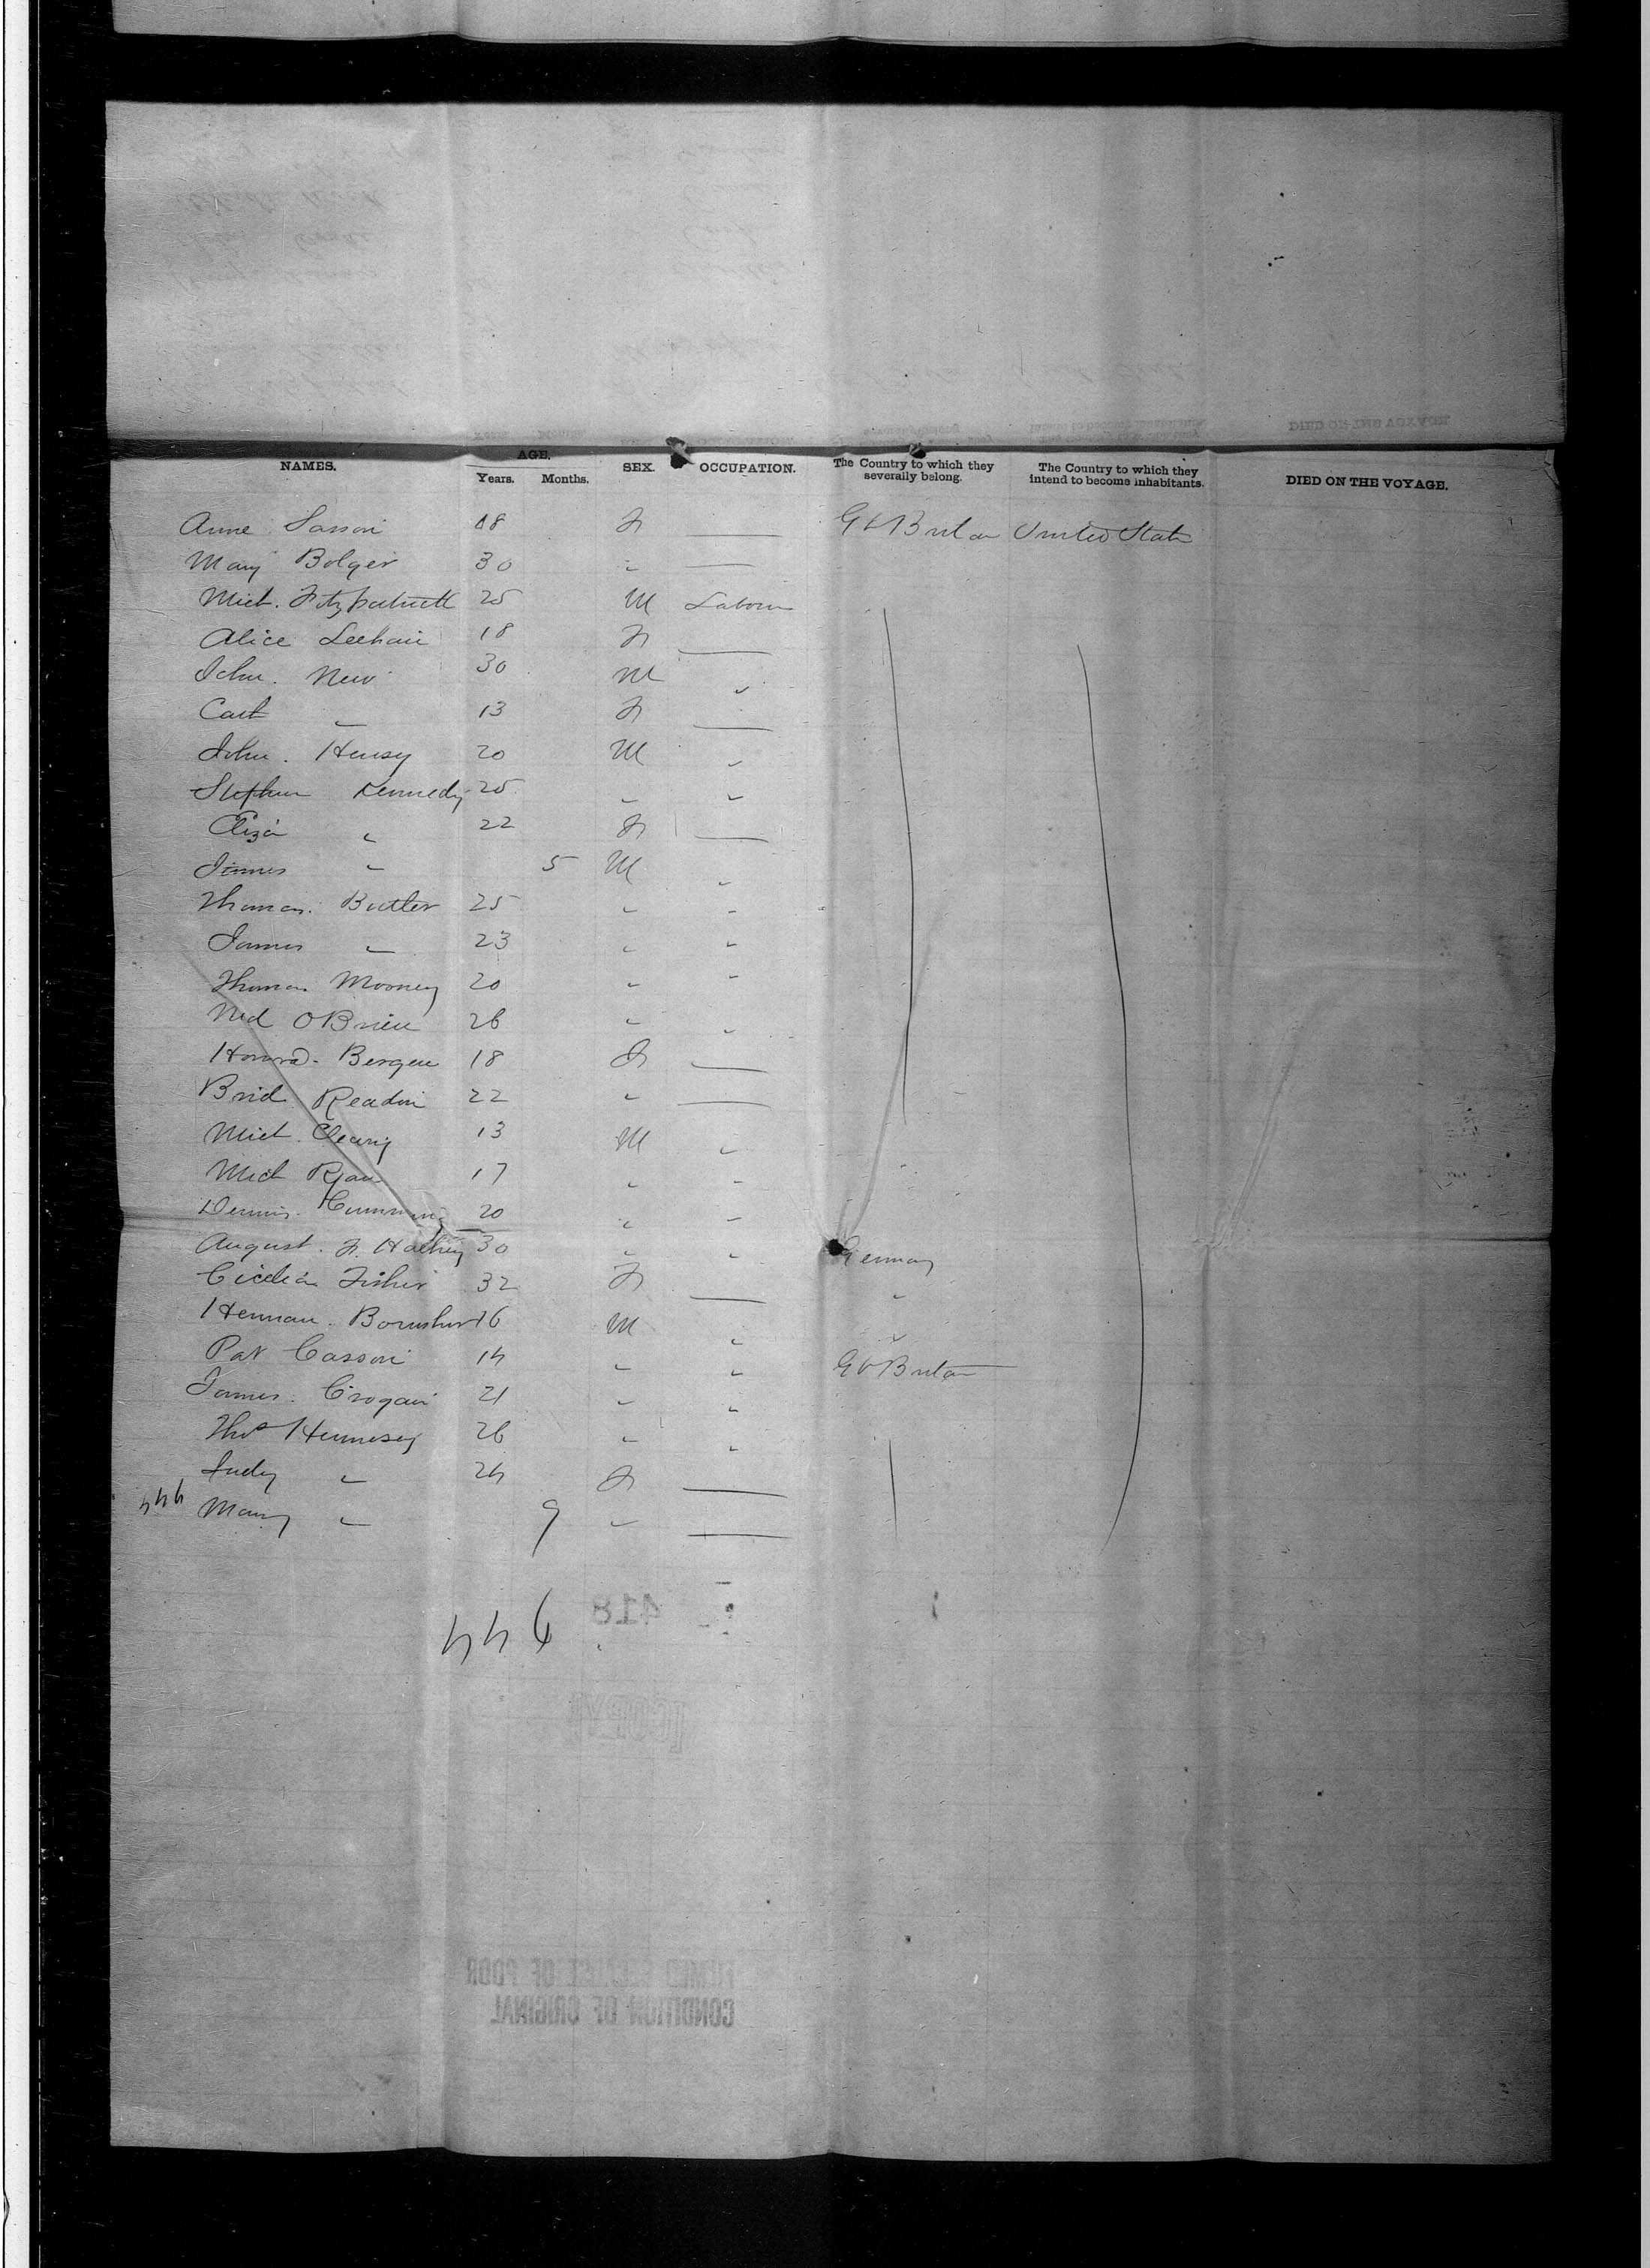 NAMES. AGE. SEX. OCCUPATION. The Country to which they severally belong. The Country to which they intend to become inhabitants. DIED ON THE VOYAGE.
Years. Months.
Anne 18 F — Gt Britan United State
Mary Bolger 30 " —
Mich. Fitzpatrick 25 M Laborer
Alice 18 F —
John. New 30 M "
Cath " 13 F —
John. Henesy 20 M "
Stephen Kennedy 25 " "
Eliza " 22 F —
James " 5 M "
Thomas. Butler 25 " "
James " 23 " "
Thomas Mooney 20 " "
Ned OBrien 26 " "
Honora. Bergen 18 F —
Brid Readin 22 " —
Mich. Cleary 13 M "
Mich Ryan 17 " "
Dennis. Cumming 20 " "
August. F. 30 " " Germany
Cicelia Fisher 32 F — "
Herman. 16 M " "
Pat Casson 14 " " Gt Britan
James. Crogan 21 " "
Thos Hennesey 26 " "
Judy " 24 F —
446 Mary " 9 " —
446
418
[COPY]
FILMED BECAUSE OF POOR
CONDITION OF ORIGINAL